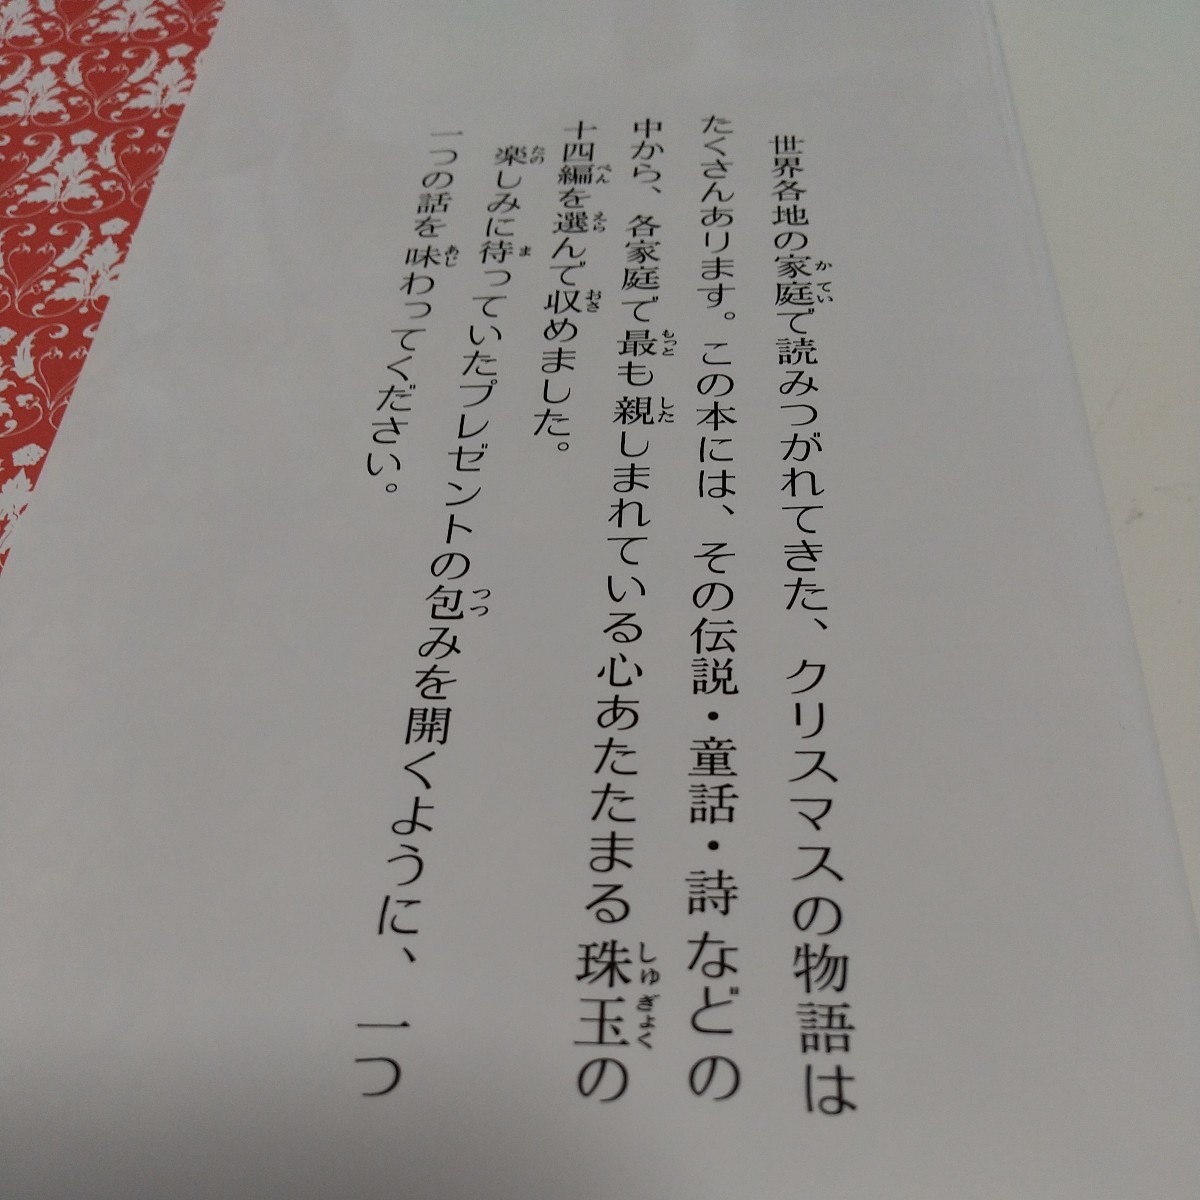 世界各地の家庭で読みつがれてきた、クリスマスの物語は
たくさんあります。この本には、その伝説・童話・詩などの
中から、各家庭で最も親しまれている心あたたまる珠玉の
十四編を選んで収めました。
楽しみに待っていたプレゼントの包みを開くように、一つ
一つの話を味わってください。